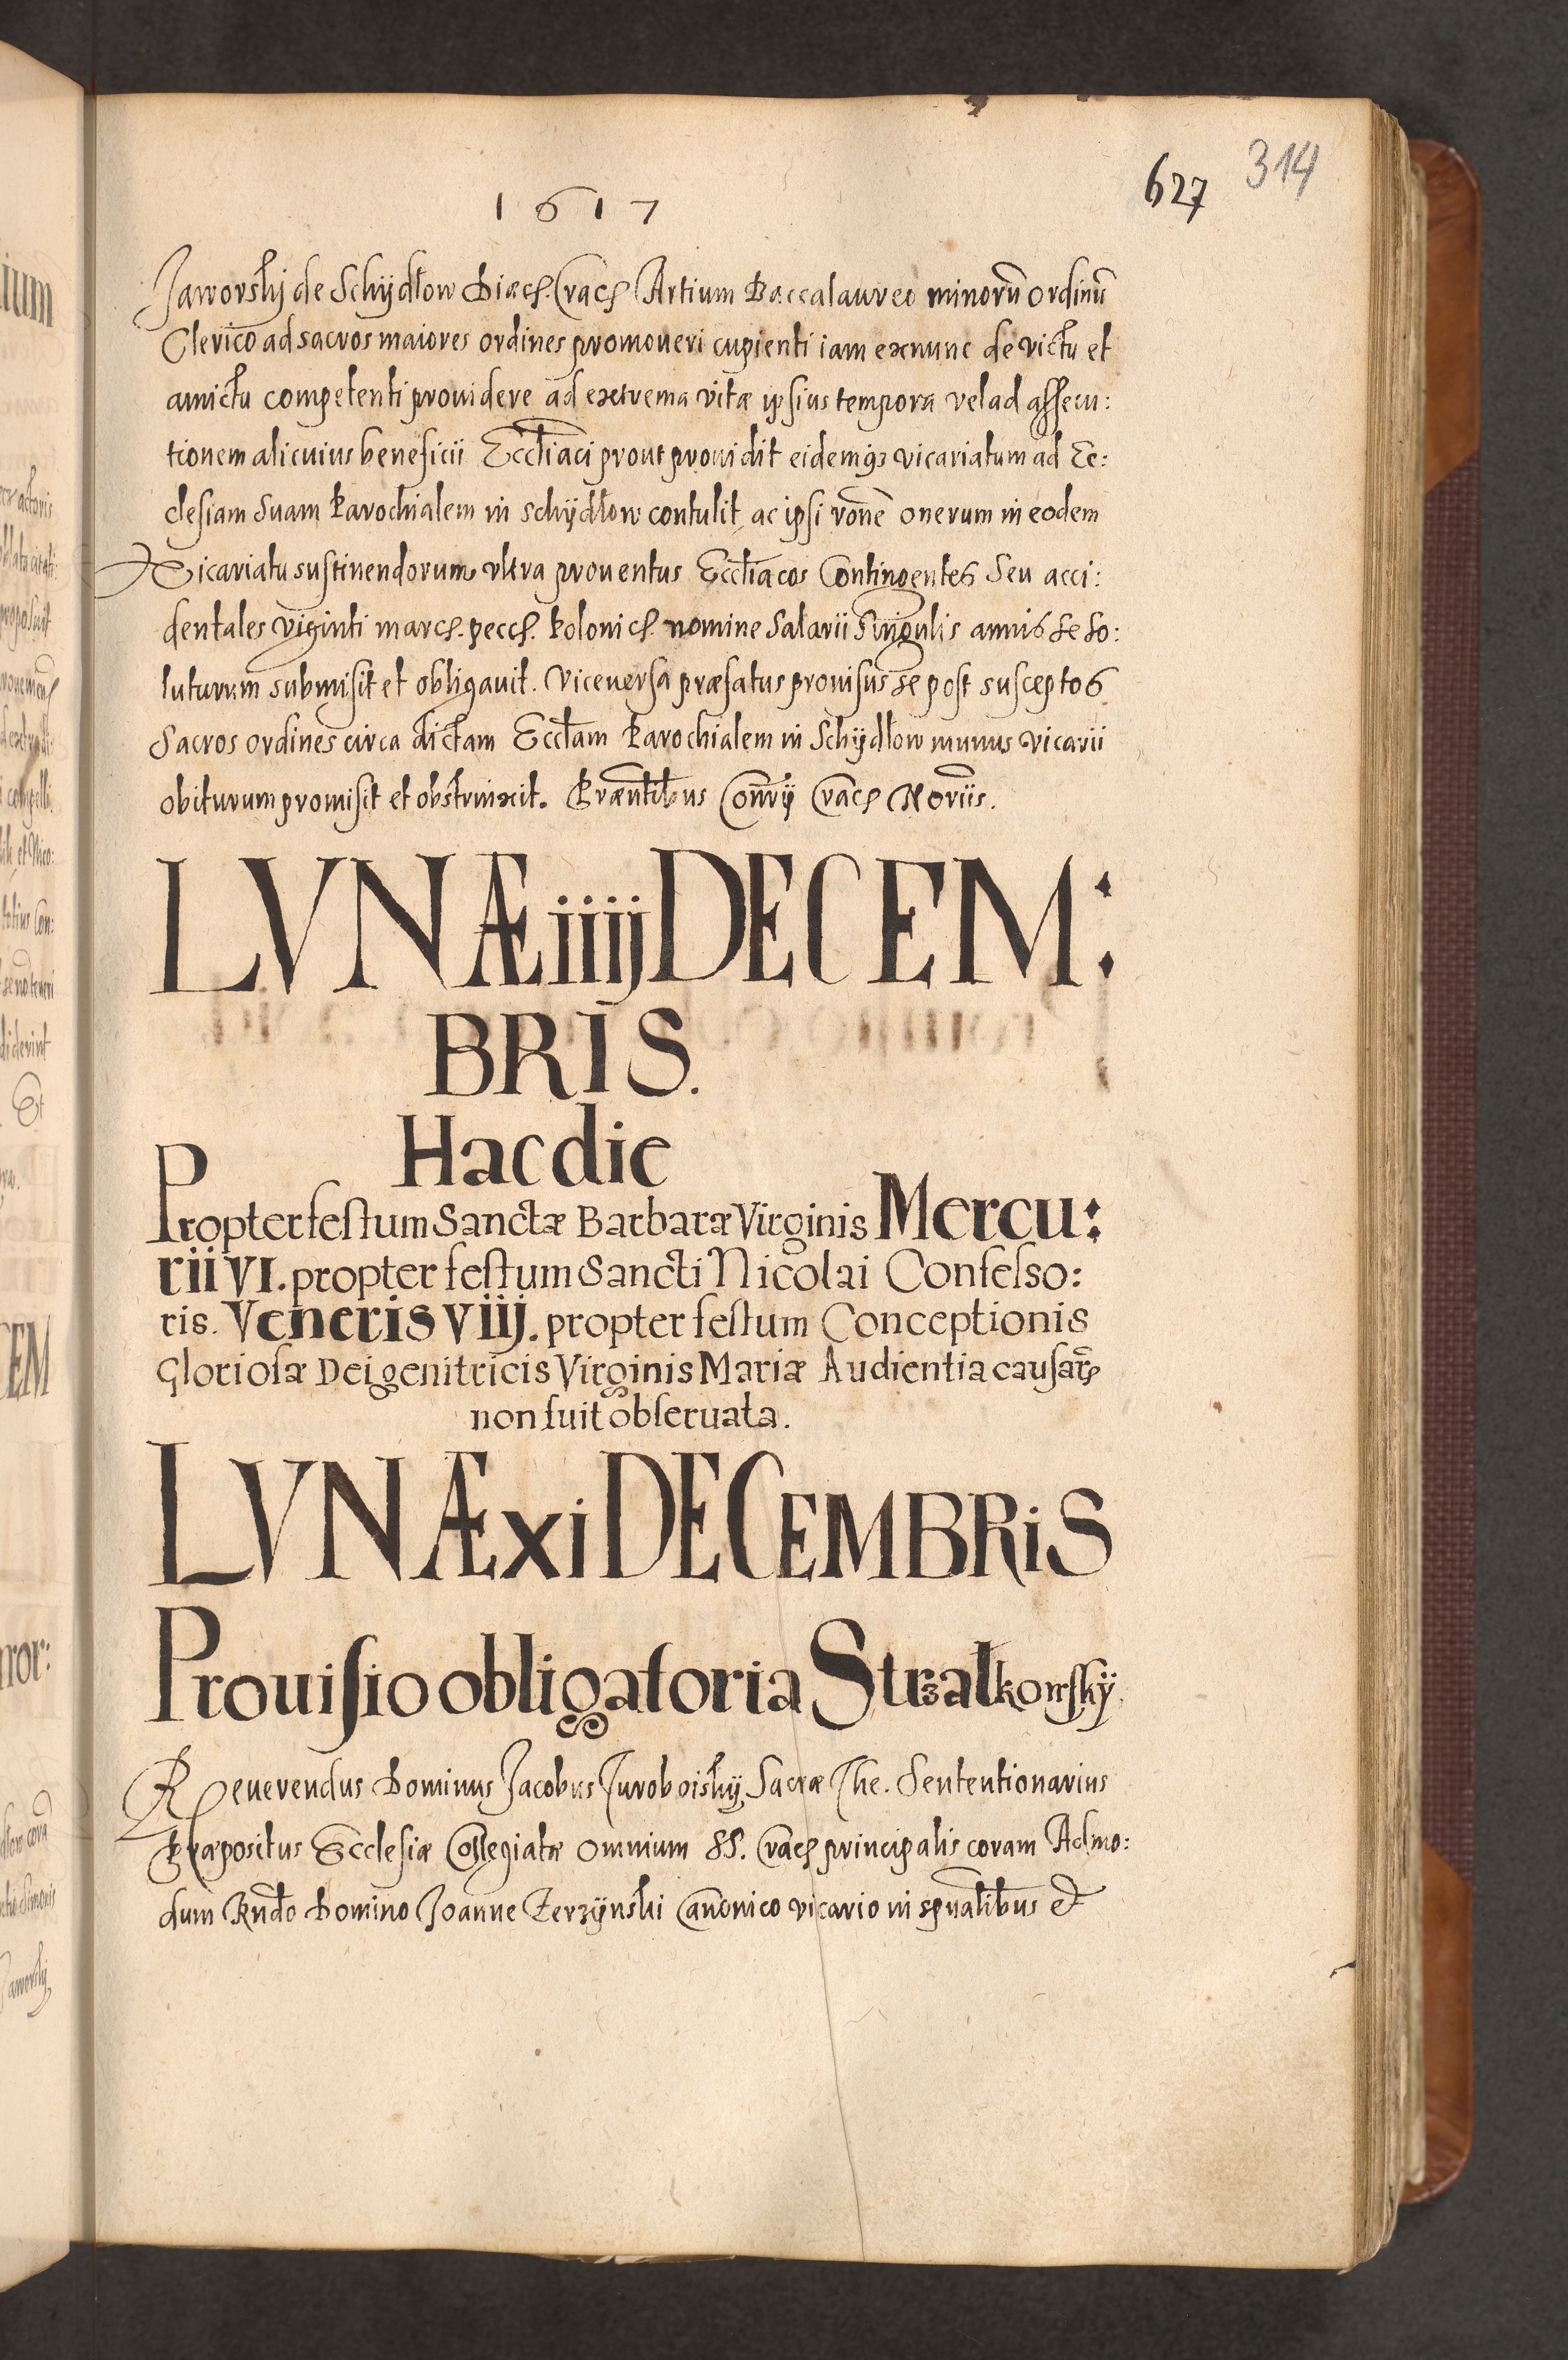 1617
627
314
Jaworskj de Schÿdłow Diœc. Crac. Artium Baccalaureo minorũ ordinũ
Clerico ad sacros maiores ordines promoueri cupienti iam exnunc de victu et
amictu competenti prouidere ad extrema vitæ ipsius tempora vel ad assecu:
tionem alicuius beneficii Eccliaci prout prouidit eidemq3 vicariatum ad Ec:
clesiam suam Parochialem in Schÿdłow contulit, ac ipsi rõne onerum in eodem
Vicariatu sustinendorum vltra prouentus Eccliacos Contingentes seu acci:
dentales viginti marc. pecc. Polonic. nomine Salarii singulis annis se so:
luturum submisit et obligauit. Viceuersa præfatus prouisus se post susceptos
Sacros ordines circa dictam Eccłam Parochialem in Schÿdłow munus vicarii
obiturum promisit et obstrinxit. Præntibus Conrÿ Crac Noriis.
LVNÆ iiij DECEM:
BRIS.
Hac die
Propter festum Sanctæ Barbaræ Virginis Mercu:
rii VI. propter festum Sancti Nicolai Confesso:
ris. Veneris VIIJ. propter festum Conceptionis
Gloriosæ Dei genitricis Virginis Mariæ Audientia causar
non fuit obseruata.
LVNÆ xi DECEMBRiS
Prouisio obligatoria Strzałkowskÿ
Reuerendus Dominus Jacobus Turoboiskÿ Sacræ The. Sententionarius
Præpositus Ecclesiæ Collegiatæ omnium SS. Crac principalis coram Admo:
dum Rndo Domino Joanne Zerzÿnski Canonico vicario in spualibus et